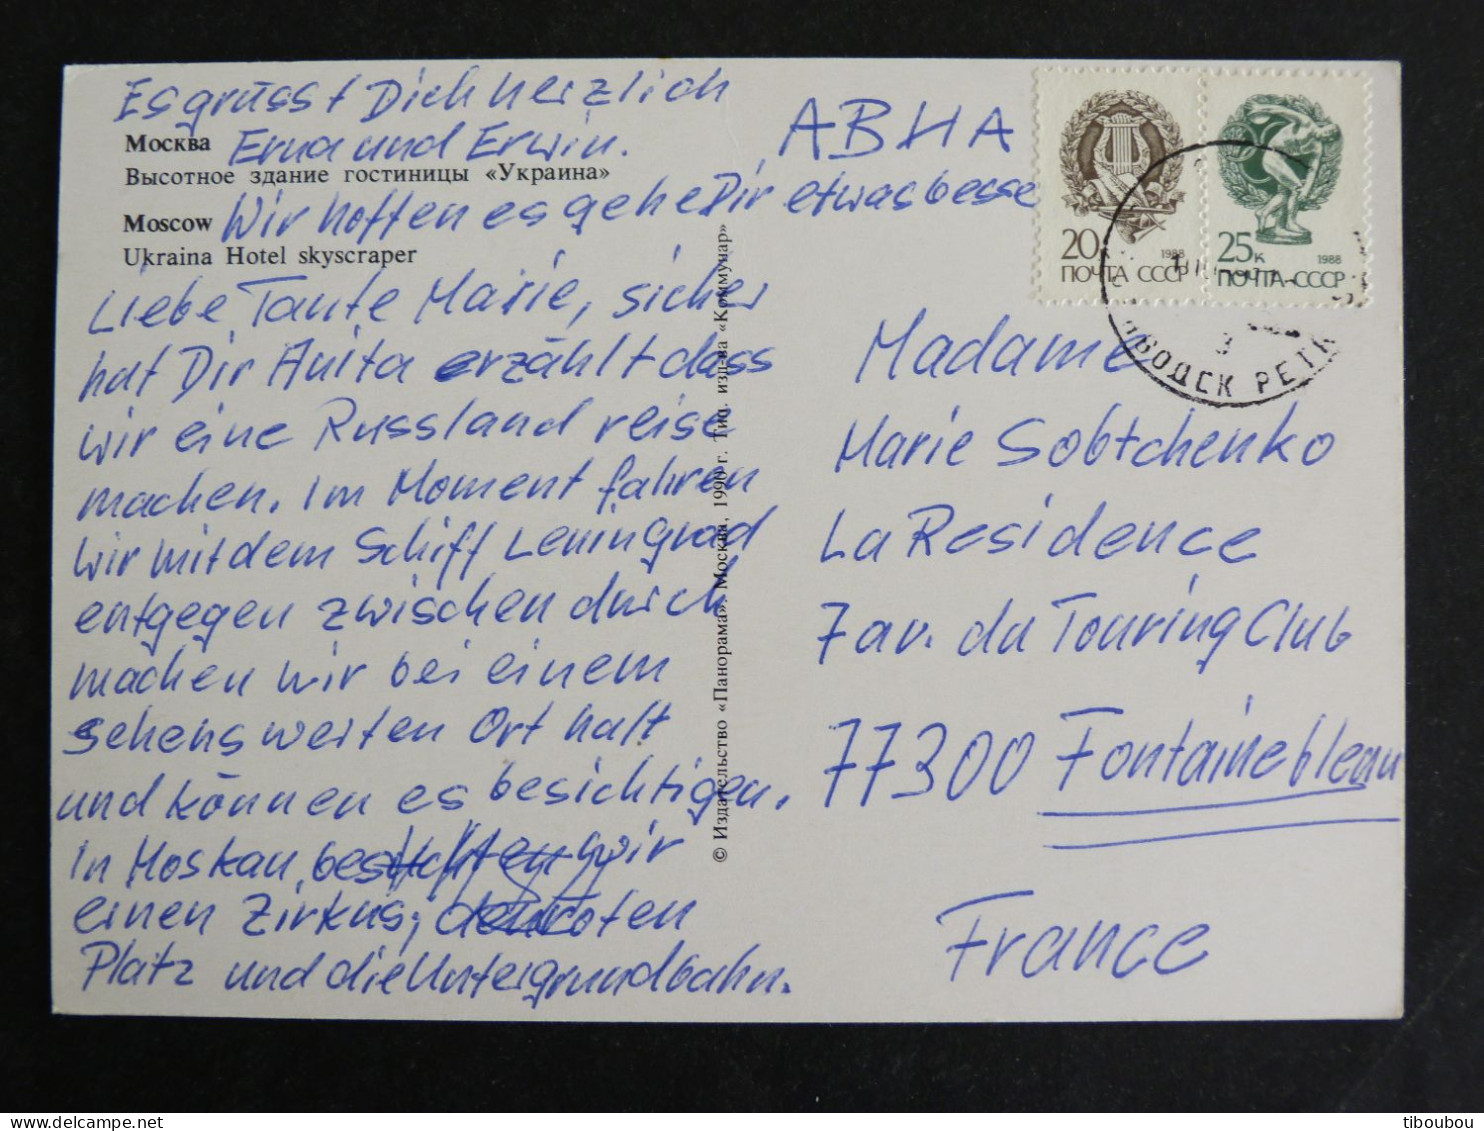 Es grüsst Dich herzlich
Erna und Erwin.
Москва
Высотное здание гостиницы «Украина»
Moscow
Ukraina Hotel skyscraper
Wir hoffen es gehe Dir etwas besse
Liebe Tante Marie, sicher
hat Dir Anita erzählt dass
wir eine Russland reise
machen. Im Moment fahren
wir mit dem Schiff Leningrad
entgegen zwischen durch
machen wir bei einem
sehenswerten Ort halt
und können es besichtigen.
In Moskau wir
einen Zirkus, roten
Platz und die Untergrundbahn.
© Издательство «Панорама». Москва, 1990 г. Тип. изд-ва «Коммунар»
АВИА
20к 1988
ПОЧТА СССР
25к 1988
ПОЧТА СССР
Madame
Marie Sobtchenko
La Residence
7 av. du Touring Club
77300 Fontainebleau
France
tiboubou (c)